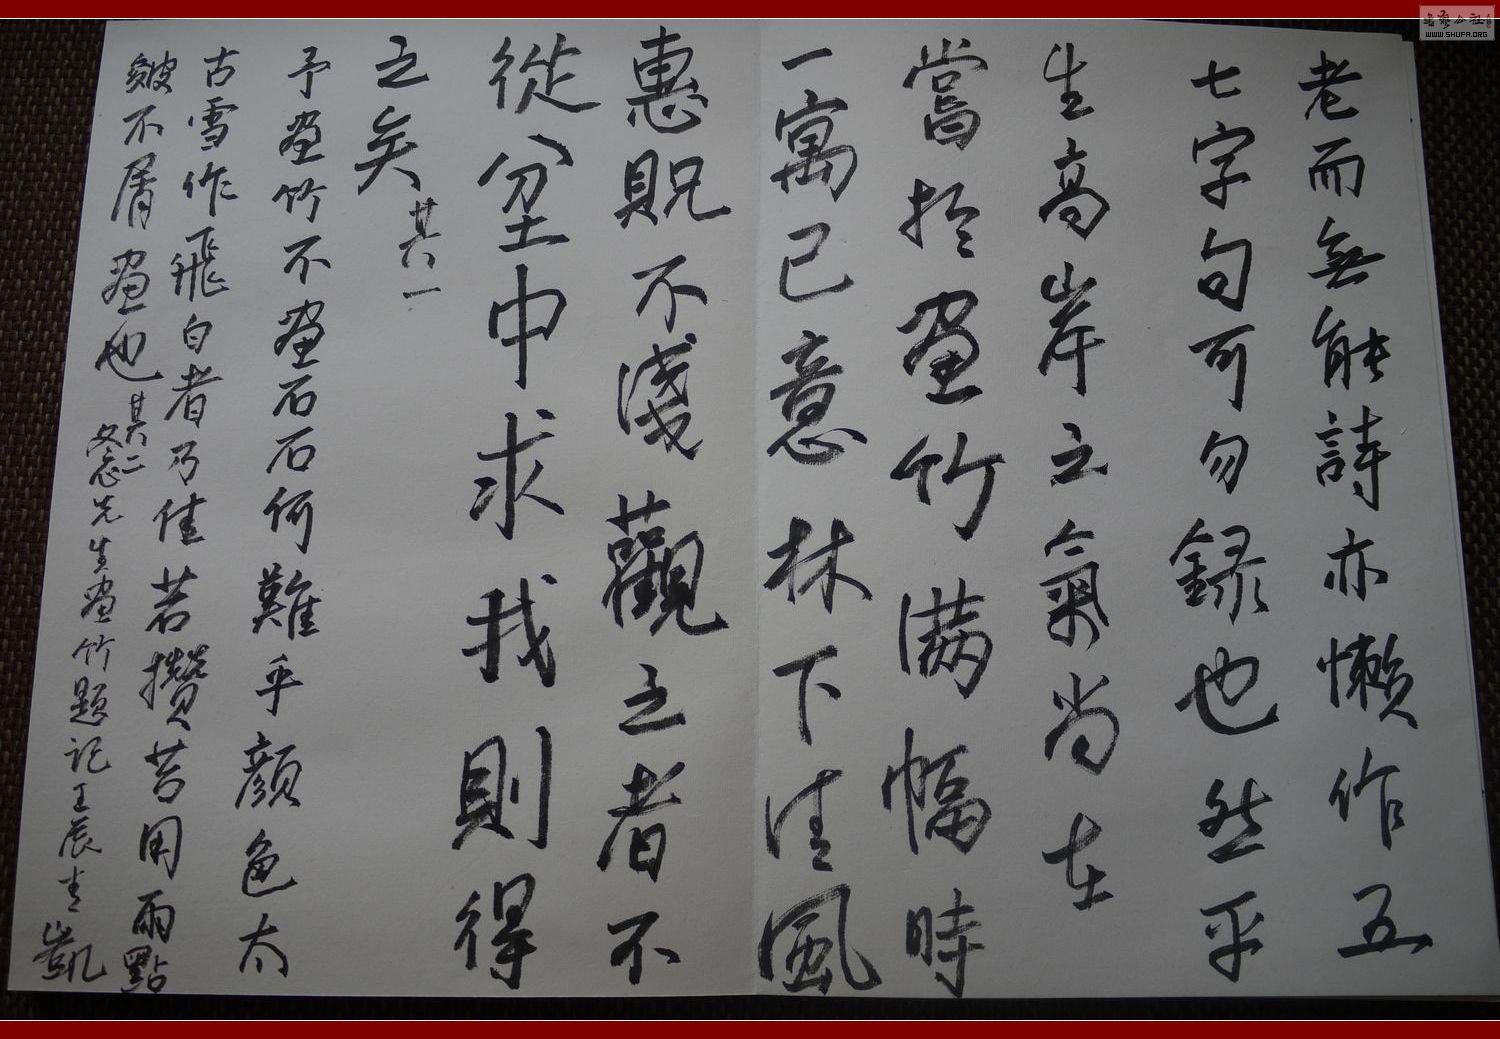 老而無能詩亦懶作五
七字句可勿録也然平
生高岸之氣尚在
嘗於畫竹滿幅時
一寓己意林下清風
惠貺不淺觀之者不
從坌中求我則得
之矣 其一
予畫竹不畫石石何難乎顔色太
古雪作飛白者乃佳若攢苔用雨點
皴不屑畫也 其二
冬心先生畫竹題記 壬辰 志凱
WWW.SHUFA.ORG